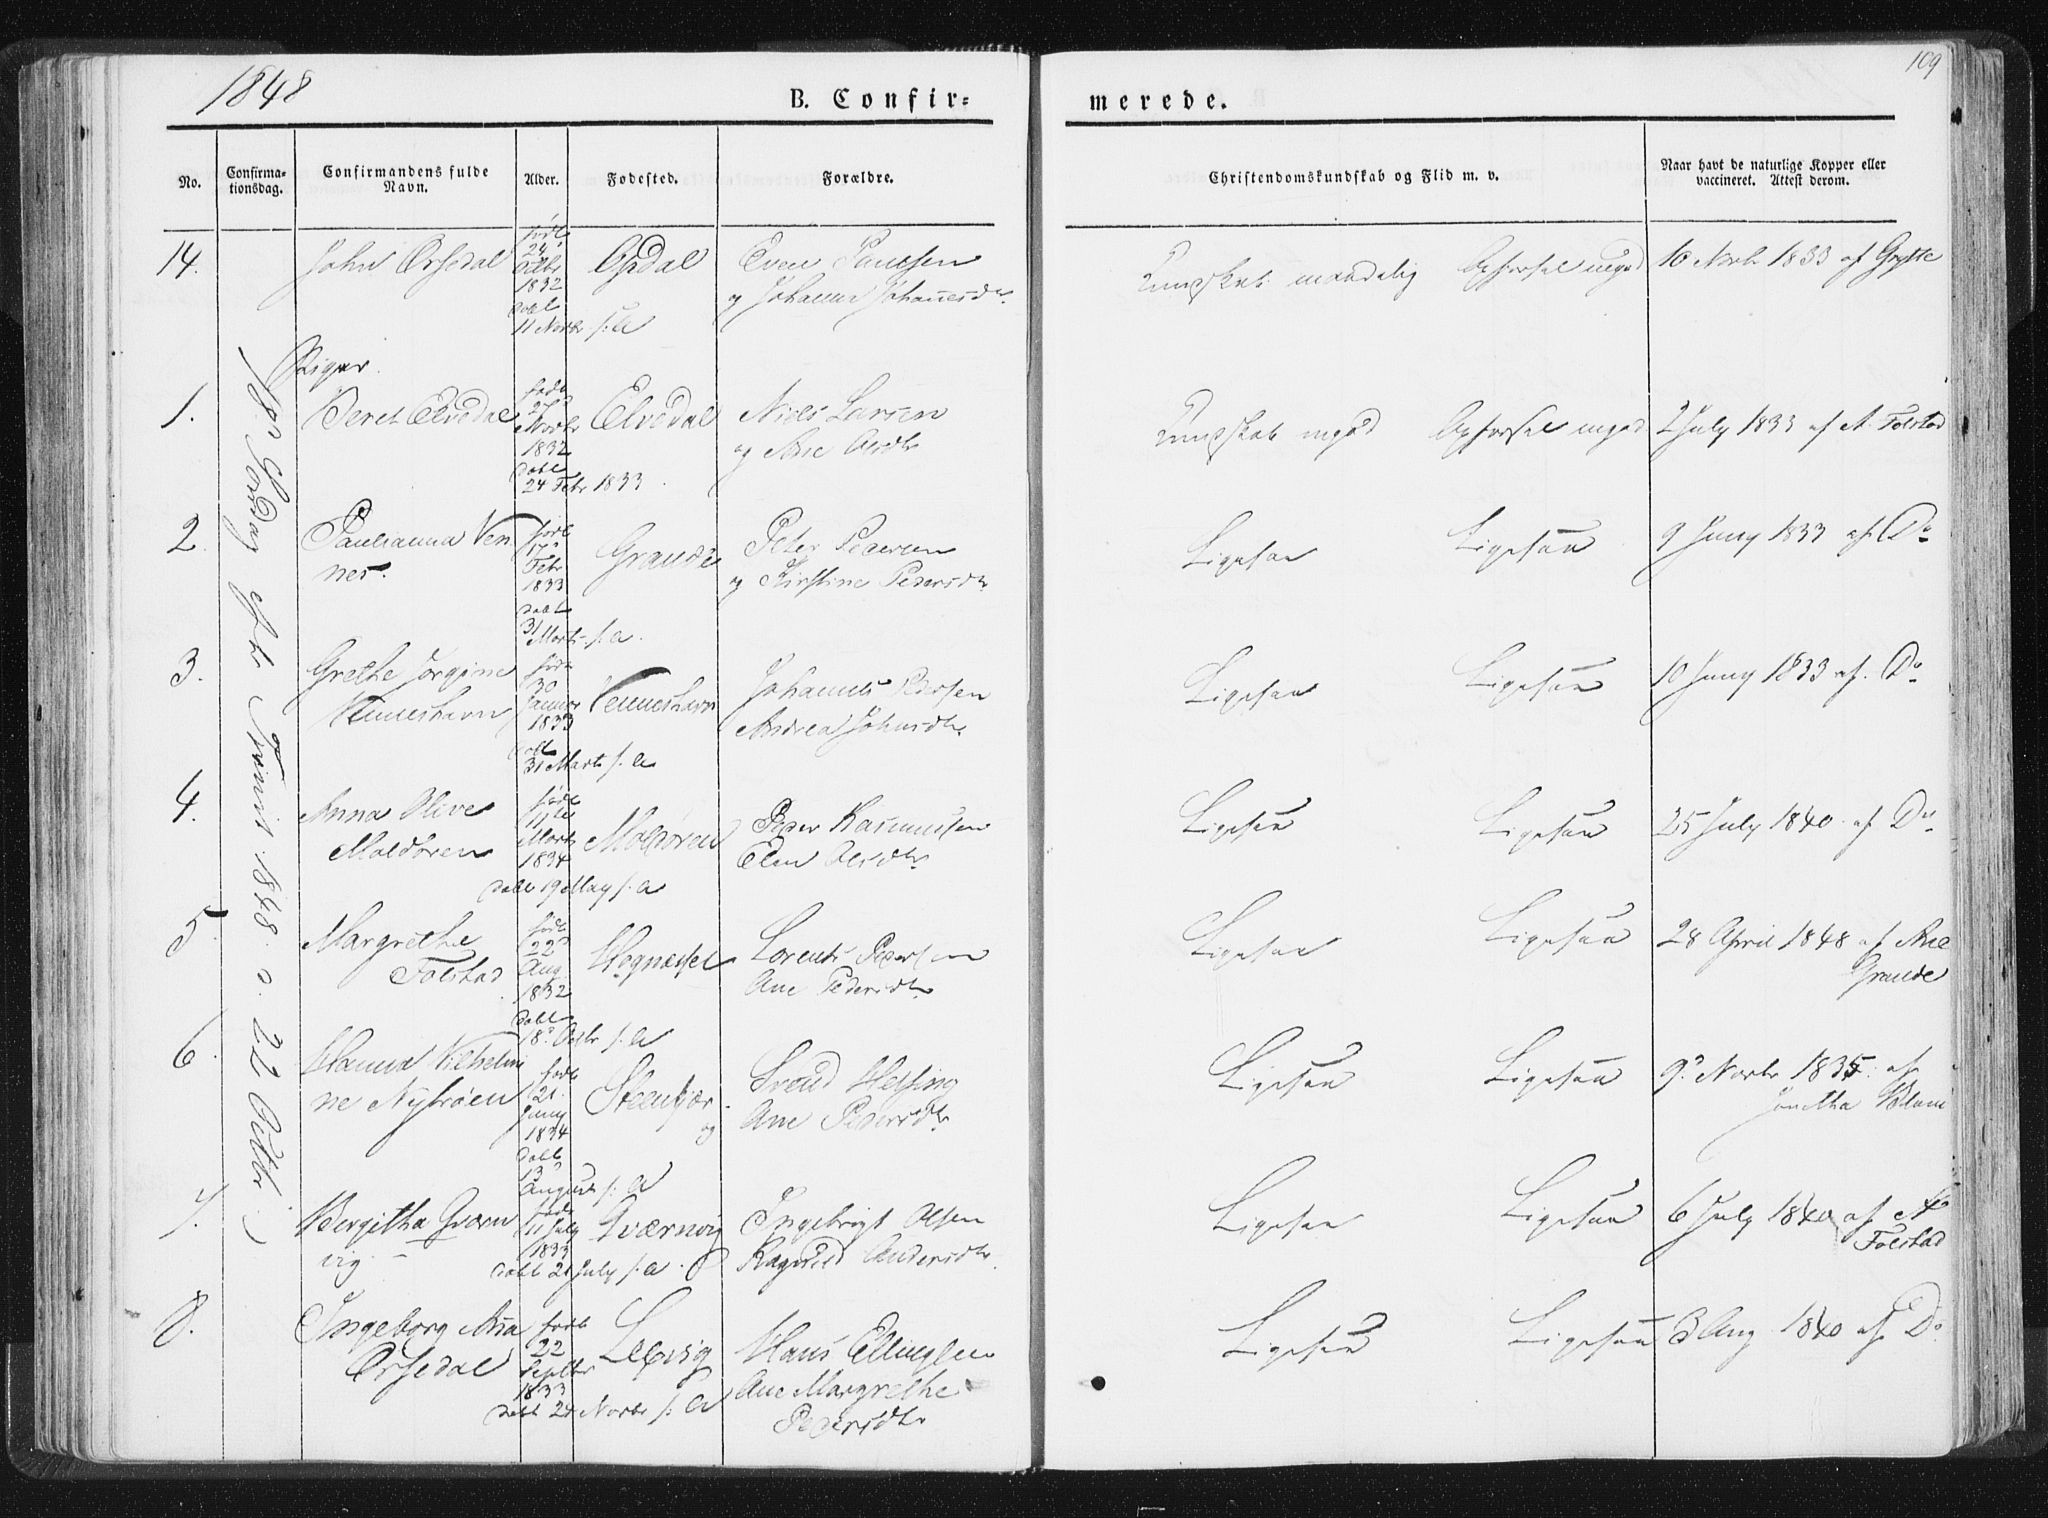 1848
B. Confir-
merede.
109
No.
Confirma-
tionsdag.
Confirmandens fulde
Navn.
Alder.
Fødested.
Forældre.
Christendomskundskab og Flid m. v.
Naar havt de naturlige Kopper eller
vaccineret. Attest derom.
18 Søndag eft Trinit 1848 d. 22 Octbr
14.
John Orsedal
født
24
Octbr
1832
døbt
11 Novbr s. a
Opdal
Even Paulsen
og Johanna Johannesdtr
Kundskab maadelig
Opførsel megod
10 Novbr 1833 af Grytte
Piger
1.
Beret Elvedal
født
27
Novbr
1832
døbt
24 Febr 1833
Elvedal
Niels Larsen
og Ane Olsdtr
Kundskab megod
Opførsel megod
2 July 1833 af A. Folstad
2
Paulianna Ven
nes.
født
17
Febr
1833
døbt
31
Marts s. a.
Grande
Peter Pedersen
og Kirstine Pedersdtr
Ligesaa
Ligesaa
9 Juny 1833 af Do
3.
Grethe Jørgine
Venneshavn
født
30
Januar
1833
døbt
31 Marts s. a
Venneshavn
Johannes Pedersen
Andrea Johnsdtr
Ligesaa
Ligesaa
10 Juny 1833 af. Do
4.
Anna Olive
Moldøren
født
11te
Marts
1834
døbt 19 May s. a
Moldøren
Peder Rasmussen
Elen Olsdtr
Ligesaa
Ligesaa
25 July 1840 af Do
5
Margrethe
Folstad
født
22
Aug
1832
døbt
18 Octbr s. a
Hognæsset
Lorents Pedersen
Ane Pedersdtr
Ligesaa
Ligesaa
28 April 1848 af Ane
Grande
6.
Hanna Vilhelmi
ne Nybrøen
født
21
Juny
1834
døbt
13
August s. a
Steenkjær
og
Svend Helsing
Ane Pedersdtr
Ligesaa
Ligesaa
9. Novbr 1835 af
Jonetha Blom
7.
Bergitha Qværn
vig
født
11 July
1833
døbt 21 July s. a.
Qværnvig
Ingebrigt Olsen
Ragnild Andersdtr
Ligesaa
Ligesaa
6 July 1840 af A
Folstad
8.
Ingeborg Ana
Orsedal
født
22
Septbr
1833
døbt 24 Novbr s. a
Lexvig
Hans Ellingsen
Ane Margrethe
Pedersdtr
Ligesaa
Ligesaa
3 Aug 1840 af Do